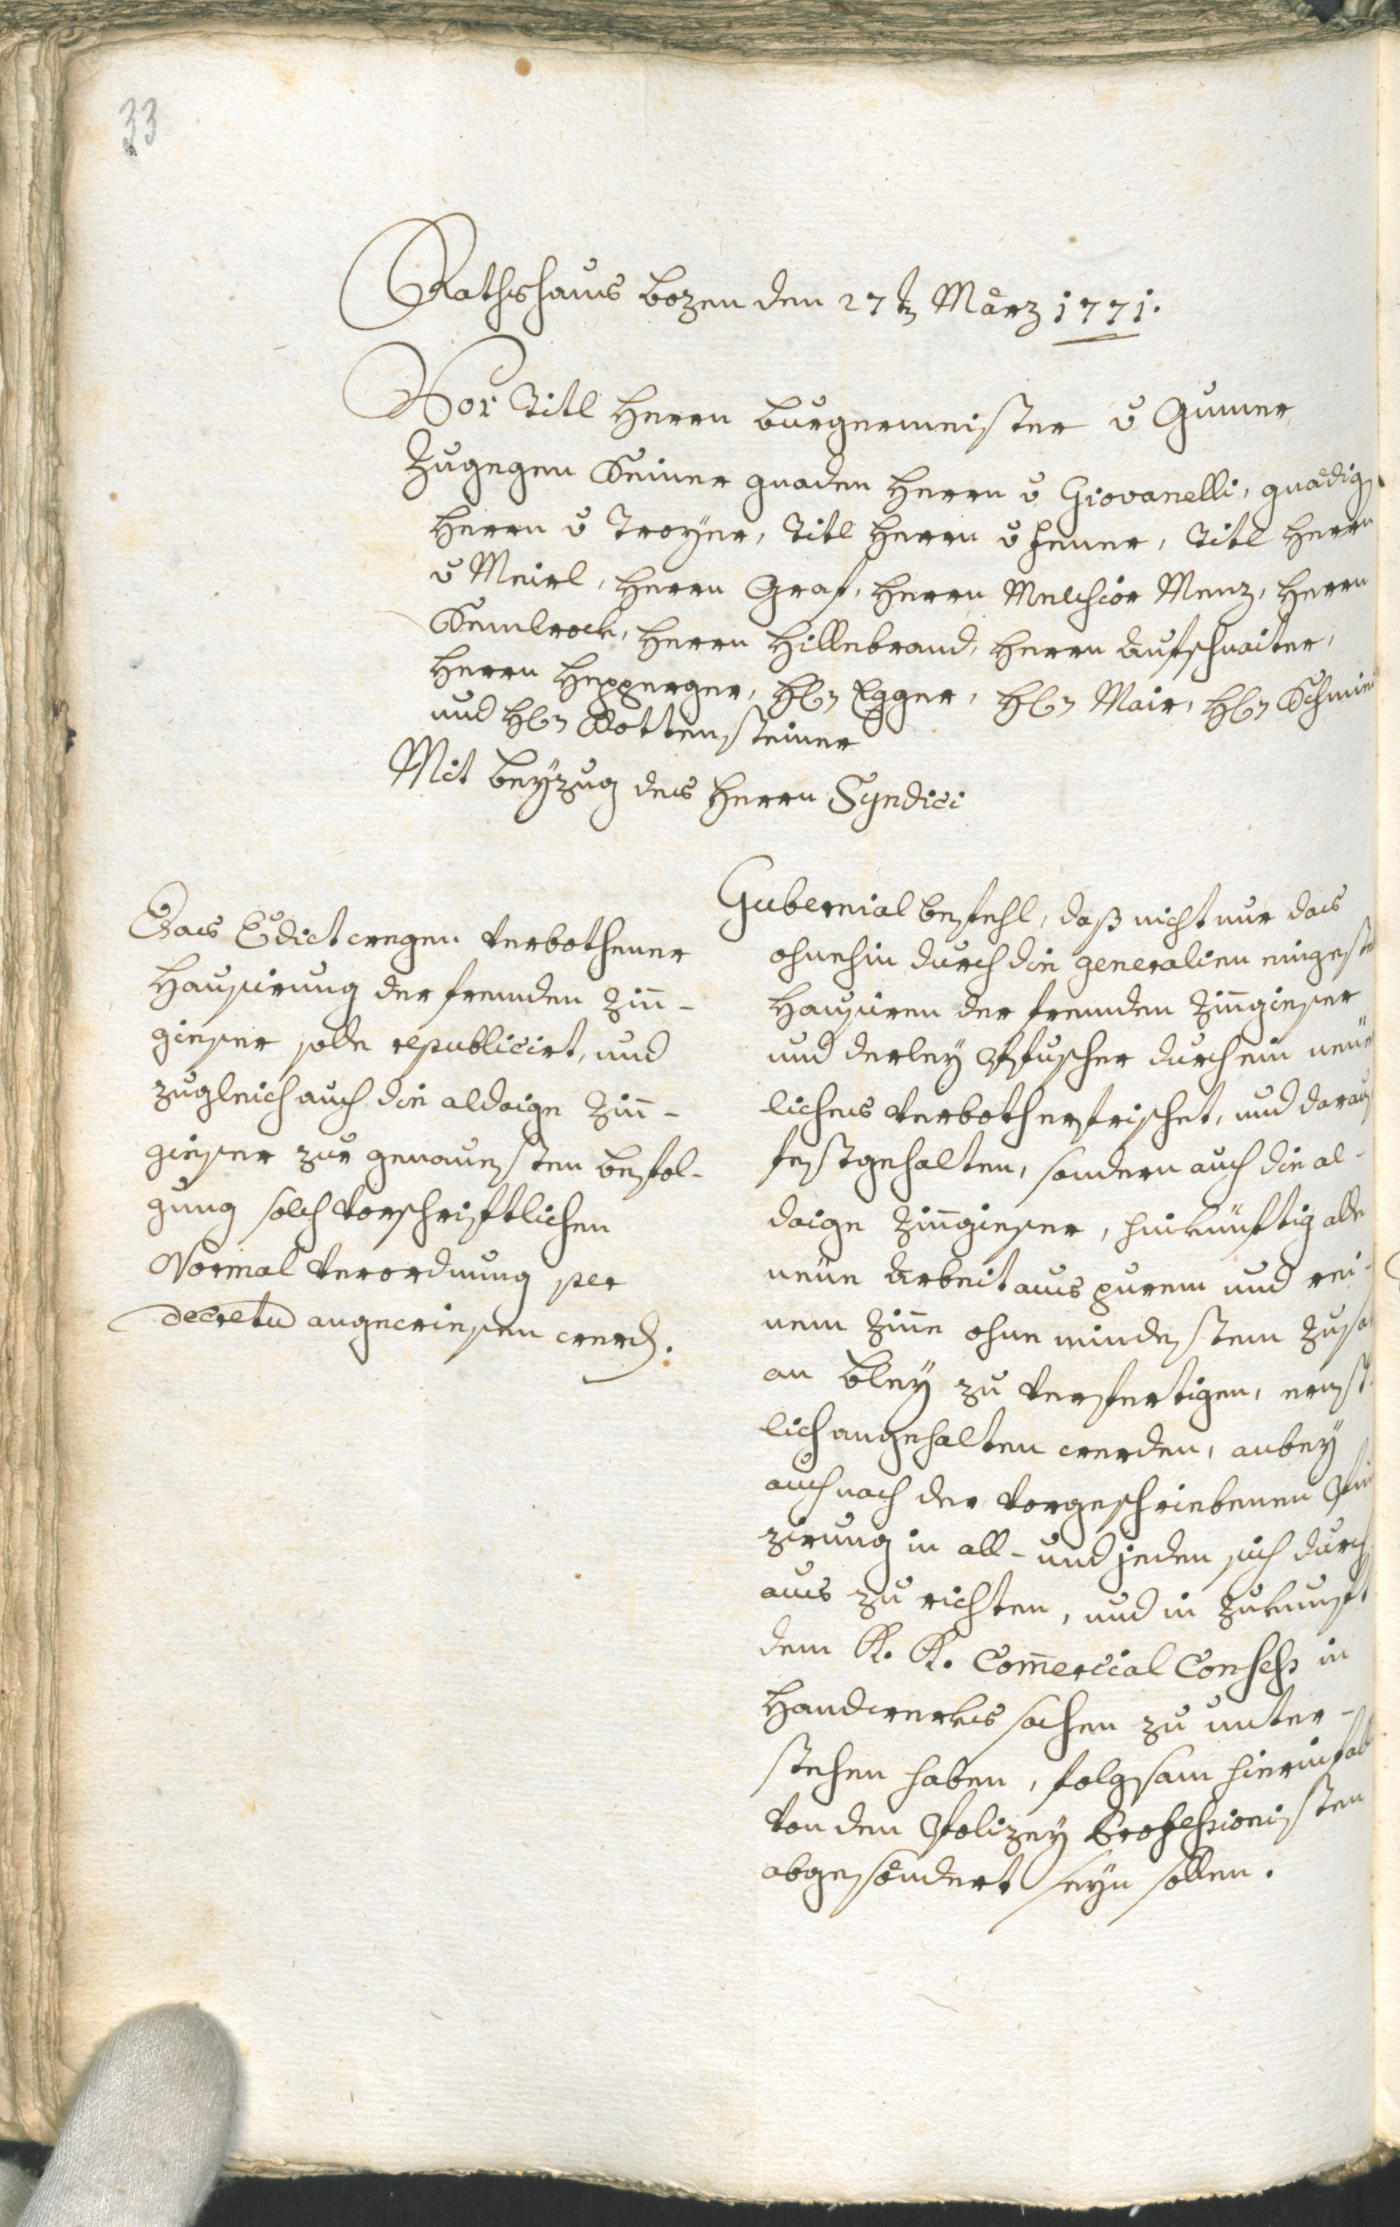 33
Rathshaus Bozen den 27ten März 1771.
Vor Titl Herrn Burgermeister v Gumer
Zugegen Seiner gnaden Herrn v Giovanelli, gnädig
Herrn v Troyer, Titl Herrn v Hener, Titl Herrn
v Meirl, Herrn Graf, Herrn Melchior Menz, Herrn
Semlrock, Herrn Hillebrand, Herrn Aufschnaiter,
Herrn Hepperger, Hrn Egger, Hrn Mair, Hrn Schmid
und Hrn Rottensteiner
Mit beyzug des Herrn Syndici
Das Edict wegen verbothener
Hausirung der fremden Zin̅-
gieser solle republicirt, und
zugleich auch die aldaige Zin̅-
gieser zur genauesten befol-
gung solch vorschriftlichen
Normal verordnung per
decretu angewiesen werd.
Gubernial befehl, daß nicht nur das
ohnehin durch die generalien eingeste
Hausiren der fremden Zin̅gieser
und derley Pfuscher durch ein neüer
liches verboth erfrischet, und darauf
festgehalten, sondern auch die al-
daige Zin̅gieser, hinkünftig alle
neüe Arbeit aus purem und rei-
nem Zin̅e ohne mindestem zusa
an Bley zu verfertigen, ernst-
lich angehalten werden, anbey
auch nach der vorgeschriebenen Pun
zirung in all- und jeden sich durch
aus zu richten, und in Zukunft
dem K. K. Com̅ercial Consess in
Handwerks sachen zu unter-
stehen haben, folgsam hierinfall
von den Polizey Professionisten
abgesöndert seyn sollen.